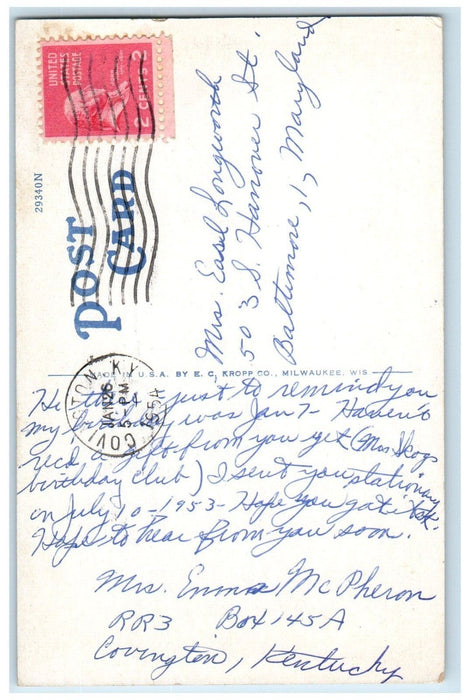 UNITED
STATES
POSTAGE
2 CENTS 2
POST
CARD
29340N
Mrs. Easel Longworth
503 S. Hanover St
Baltimore, 1, Maryland
MADE IN U.S.A. BY E. C. KROPP CO., MILWAUKEE, WIS
COVINGTON KY.
JAN 26
5 - PM
1954
just to remind you
my birthday was Jan 7 - Haven't
rec'd a gift from you yet (Mrs Skogs
birthday club) I sent you stationary
on July 10 - 1953 - Hope you got it ok.
Hope to hear from you soon.
Mrs. Emma McPheron
RR3 Box 145A
Covington, Kentucky